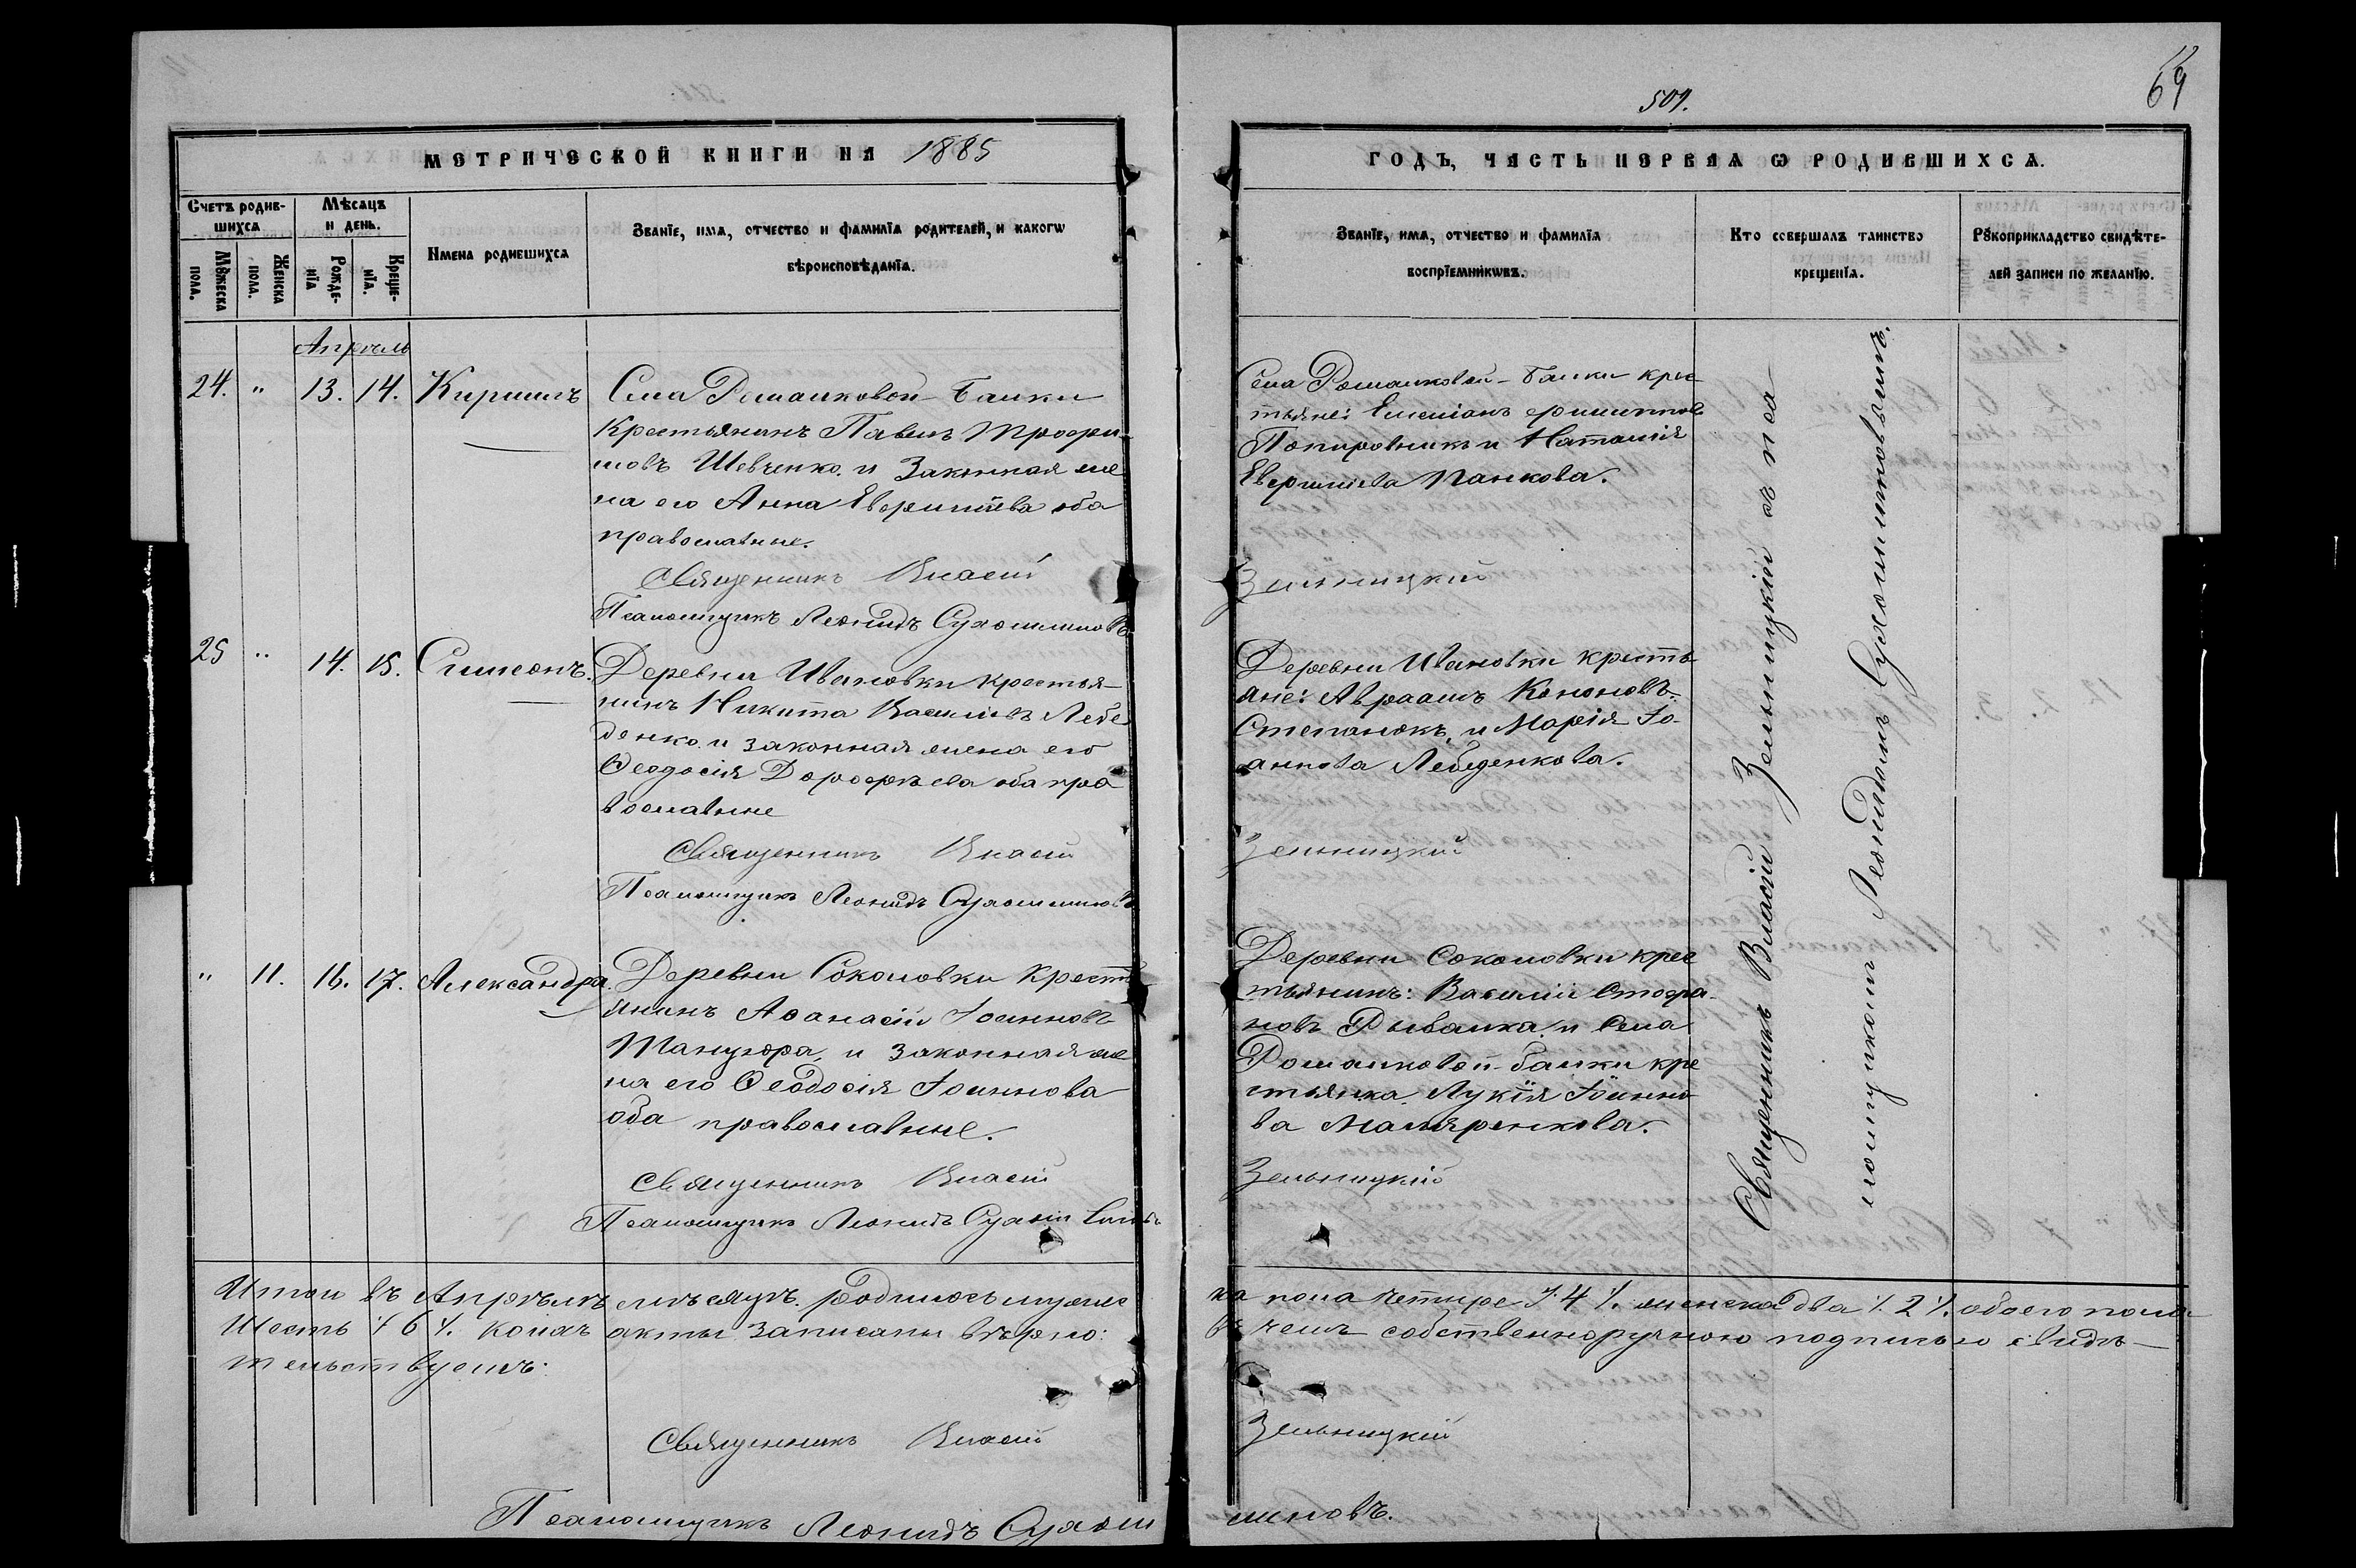 509.
69
МЕТРИЧЕСКОЙ КНИГИ НА 1885
ГОДЪ, ЧАСТЬ ПЕРВАЯ Ѡ РОДИВШИХСѦ.
Счетъ родив-
шихсѧ
Мѣсѧцъ
и день.
Мꙋжеска
пола.
Женска
пола.
Рожде-
нїѧ
Креще-
нїѧ.
Имена родившихсѧ
Званїе, имѧ, отчество и фамилїѧ родителей, и какогѡ
вѣроисповѣданїѧ.
Званїе, имѧ, отчество и фамилїѧ
воспрїемникѡвъ.
Кто совершалъ таинство
крещенїѧ.
Рꙋкоприкладство свидѣте-
лей записи по желанїю.
Апрѣль
24. " 13. 14. Кириллъ
Села Ромашковой-Балки
Крестьянинъ Павелъ Трофи-
мовъ Шевченко. и Законная же
на его Анна Евфиміева оба
православные.
Священникъ Власій
Псаломщикъ Леонидъ Сухомлиновъ
Села Ромашковой-Балки крес
тьяне: Емеліанъ
и Наталія
Евфиміева Панкова.
Зельницкій
25 " 14. 15. Симеонъ.
Деревни Ивановки крестья-
нинъ Никита Васильевъ Лебе
денко. и законная жена его
Ѳеодосія Дорофѣева оба пра
вославные
Священникъ Власій
Псаломщикъ Леонидъ Сухомлиновъ
Деревни Ивановки кресть
яне: Авраамъ Кононовъ
Степанюкъ, и Марія Іо-
аннова Лебеденкова.
Зельницкій
" 11. 16. 17. Александра.
Деревни Соколовки Кресть
янинъ Аѳанасій Іоанновъ
Манцюра, и законная же
на его Ѳеодосія Іоаннова
оба православные.
Священникъ Власій
Псаломщикъ Леонидъ Сухомлиновъ
Деревни Соколовки крес
тьянинъ: Василій Стефа-
новъ Рыбалка, и Села
Ромашковой-балки кре
стьянка Лукія Іоанно
ва Маляренкова.
Зельницкій
Священникъ Власій Зельницкій съ пса
ломщикомъ Леонидомъ Сухомлиновымъ.
Итого въ Апрѣлѣ мѣсяцѣ. родилось мужес
ка пола четыре /. 4 /. женска два /. 2 /. обоего пола
Шесть /. 6 /. коихъ акты записаны вѣрно:
въ чемъ собственноручною подписью свидѣ-
тельствуемъ:
Священникъ Власій
Зельницкій
Псаломщикъ Леонидъ Сухом
линовъ.